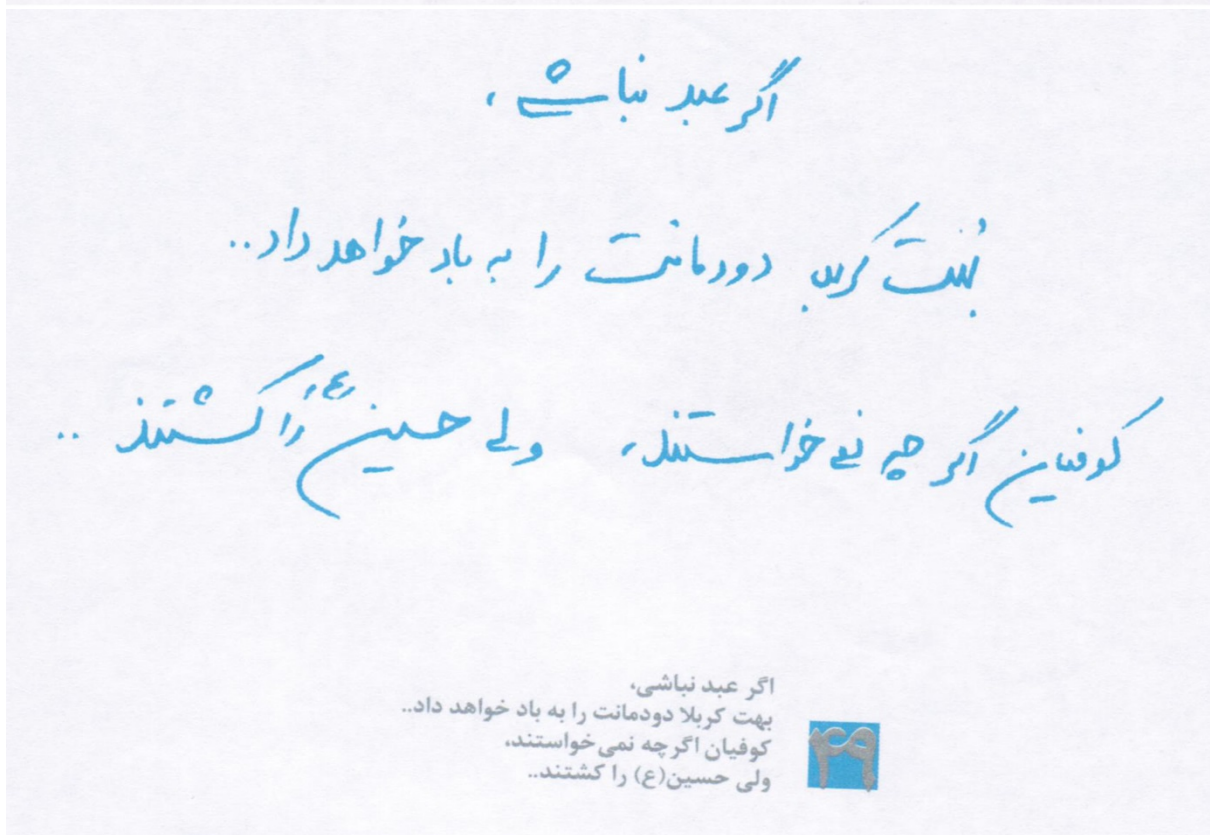 اگر عبد نباشی،
بهت کربلا دودمانت را به باد خواهد داد..
کوفیان اگر چه نمی خواستند، ولی حسین (ع) را کشتند..
اگر عبد نباشی،
بهت کربلا دودمانت را به باد خواهد داد..
کوفیان اگر چه نمی‌خواستند،
ولی حسین(ع) را کشتند..
۴۹